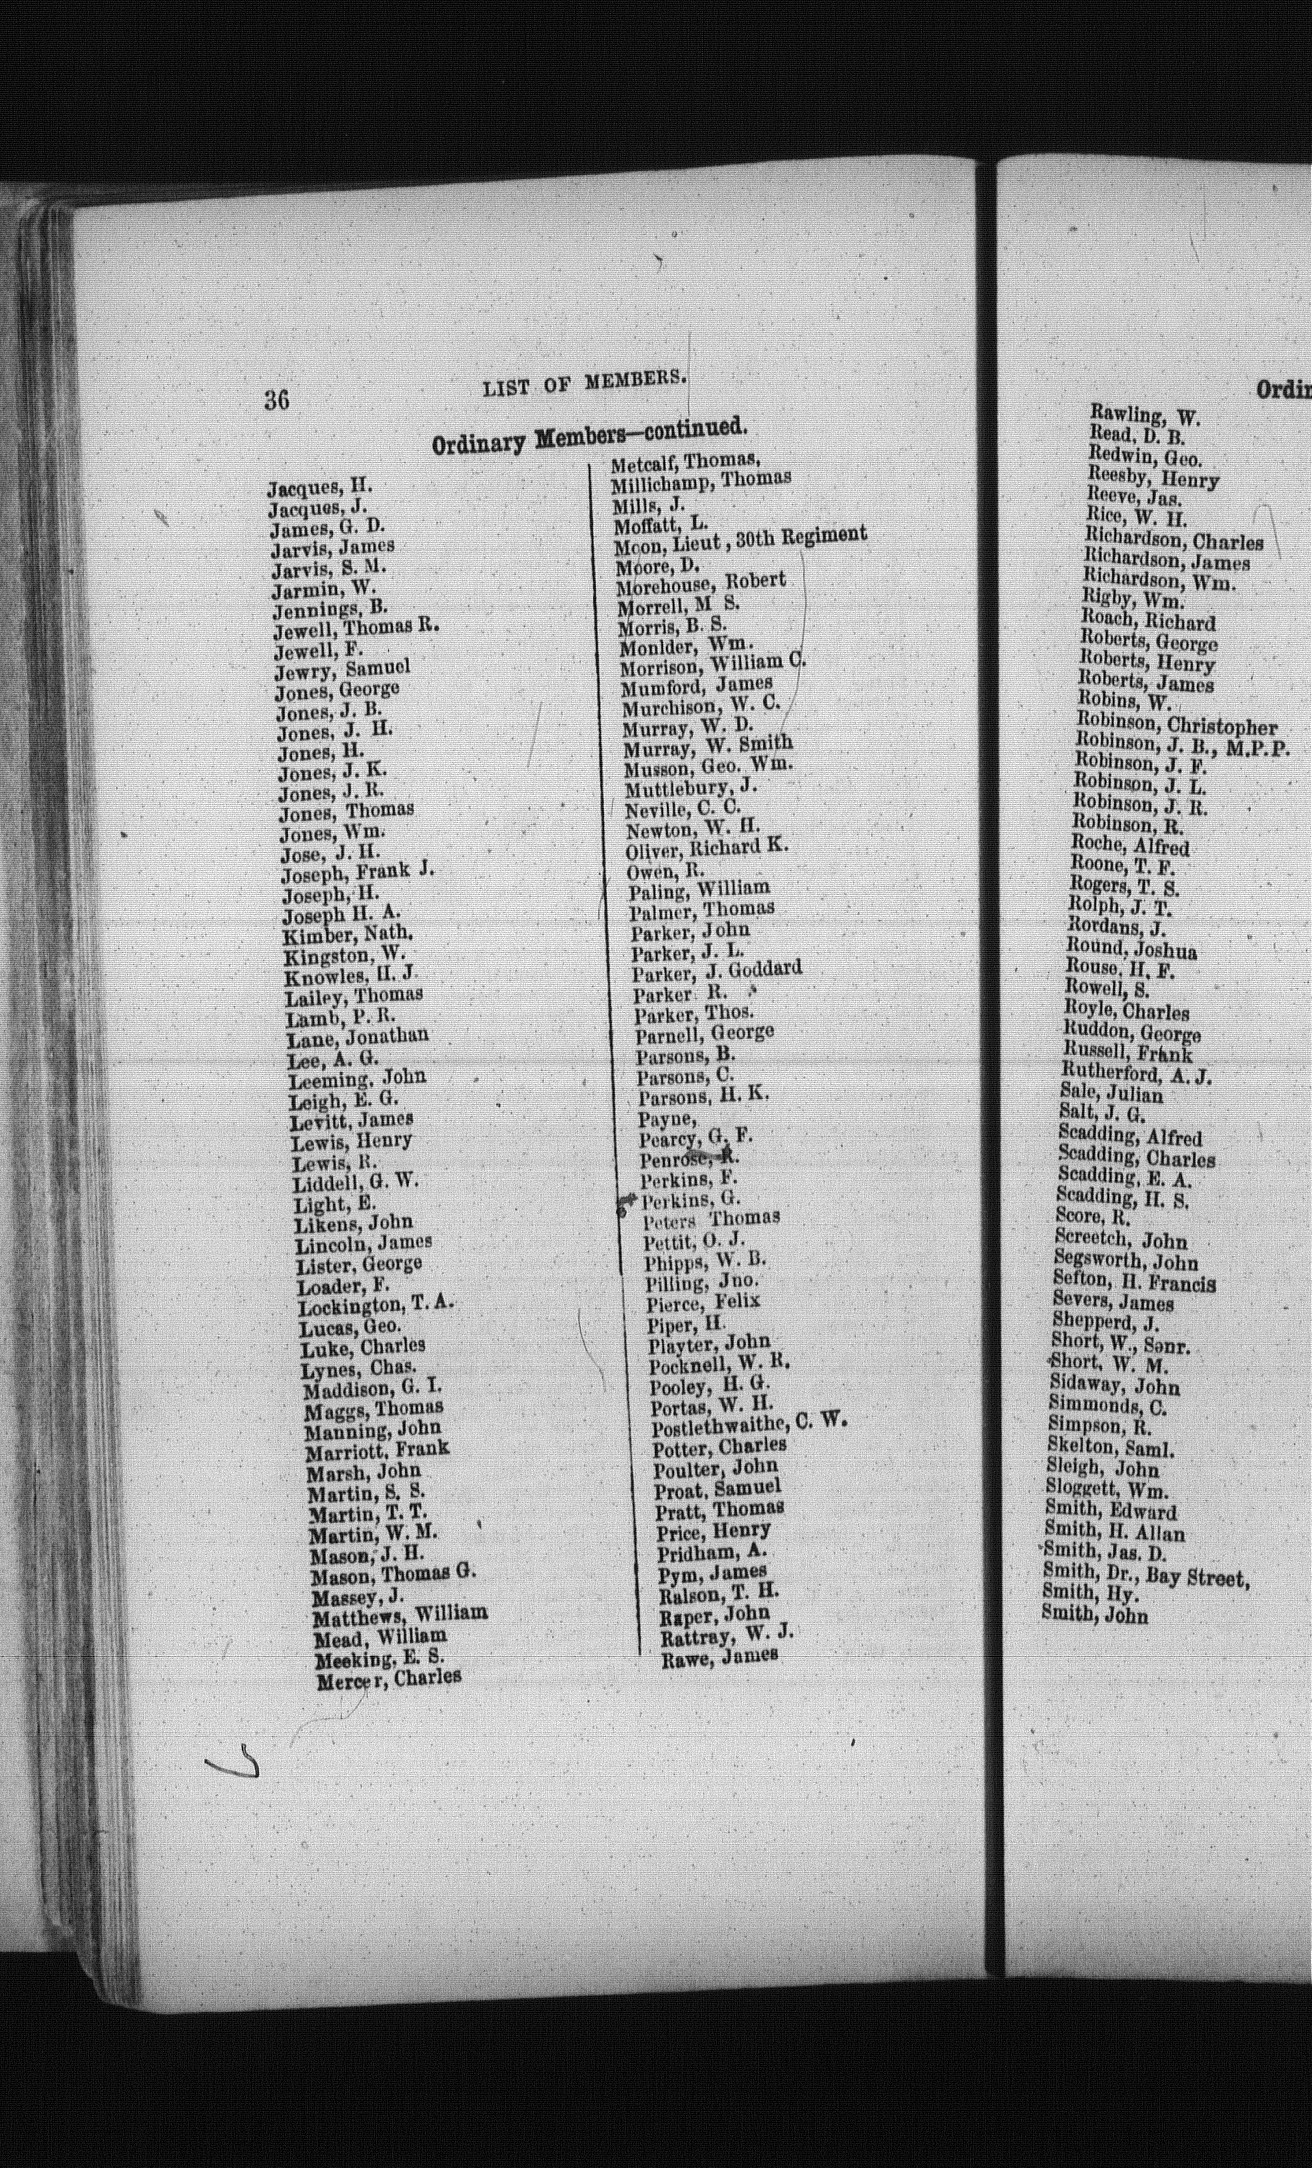 36
LIST OF MEMBERS.
Ordinary Members—continued.
Jacques, H.
Jacques, J.
James, G. D.
Jarvis, James
Jarvis, S. M.
Jarmin, W.
Jennings, B.
Jewell, Thomas R.
Jewell, F.
Jewry, Samuel
Jones, George
Jones, J. B.
Jones, J. H.
Jones, H.
Jones, J. K.
Jones, J. R.
Jones, Thomas
Jones, Wm.
Jose, J. H.
Joseph, Frank J.
Joseph, H.
Joseph H. A.
Kimber, Nath.
Kingston, W.
Knowles, H. J.
Lailey, Thomas
Lamb, P. R.
Lane, Jonathan
Lee, A. G.
Leeming, John
Leigh, E. G.
Levitt, James
Lewis, Henry
Lewis, R.
Liddell, G. W.
Light, E.
Likens, John
Lincoln, James
Lister, George
Loader, F.
Lockington, T. A.
Lucas, Geo.
Luke, Charles
Lynes, Chas.
Maddison, G. I.
Maggs, Thomas
Manning, John
Marriott, Frank
Marsh, John
Martin, S. S.
Martin, T. T.
Martin, W. M.
Mason, J. H.
Mason, Thomas G.
Massey, J.
Matthews, William
Mead, William
Meeking, E. S.
Mercer, Charles
Metcalf, Thomas,
Millichamp, Thomas
Mills, J.
Moffatt, L.
Moon, Lieut , 30th Regiment
Moore, D.
Morehouse, Robert
Morrell, M S.
Morris, B. S.
Monlder, Wm.
Morrison, William C.
Mumford, James
Murchison, W. C.
Murray, W. D.
Murray, W. Smith
Musson, Geo. Wm.
Muttlebury, J.
Neville, C. C.
Newton, W. H.
Oliver, Richard K.
Owen, R.
Paling, William
Palmer, Thomas
Parker, John
Parker, J. L.
Parker, J. Goddard
Parker R.
Parker, Thos.
Parnell, George
Parsons, B.
Parsons, C.
Parsons, H. K.
Payne,
Pearcy, G. F.
Penrose, R.
Perkins, F.
Perkins, G.
Peters Thomas
Pettit, O. J.
Phipps, W. B.
Pilling, Jno.
Pierce, Felix
Piper, H.
Playter, John
Pocknell, W. R.
Pooley, H. G.
Portas, W. H.
Postlethwaithe, C. W.
Potter, Charles
Poulter, John
Proat, Samuel
Pratt, Thomas
Price, Henry
Pridham, A.
Pym, James
Ralson, T. H.
Raper, John
Rattray, W. J.
Rawe, James
Ordin
Rawling, W.
Read, D. B.
Redwin, Geo.
Reesby, Henry
Reeve, Jas.
Rice, W. H.
Richardson, Charles
Richardson, James
Richardson, Wm.
Rigby, Wm.
Roach, Richard
Roberts, George
Roberts, Henry
Roberts, James
Robins, W.
Robinson, Christopher
Robinson, J. B., M.P.P.
Robinson, J. F.
Robinson, J. L.
Robinson, J. R.
Robinson, R.
Roche, Alfred
Roone, T. F.
Rogers, T. S.
Rolph, J. T.
Rordans, J.
Round, Joshua
Rouse, H. F.
Rowell, S.
Royle, Charles
Ruddon, George
Russell, Frank
Rutherford, A. J.
Sale, Julian
Salt, J. G.
Scadding, Alfred
Scadding, Charles
Scadding, E. A.
Scadding, H. S.
Score, R.
Screetch, John
Segsworth, John
Sefton, H. Francis
Severs, James
Shepperd, J.
Short, W., Senr.
Short, W. M.
Sidaway, John
Simmonds, C.
Simpson, R.
Skelton, Saml.
Sleigh, John
Sloggett, Wm.
Smith, Edward
Smith, H. Allan
Smith, Jas. D.
Smith, Dr., Bay Street,
Smith, Hy.
Smith, John